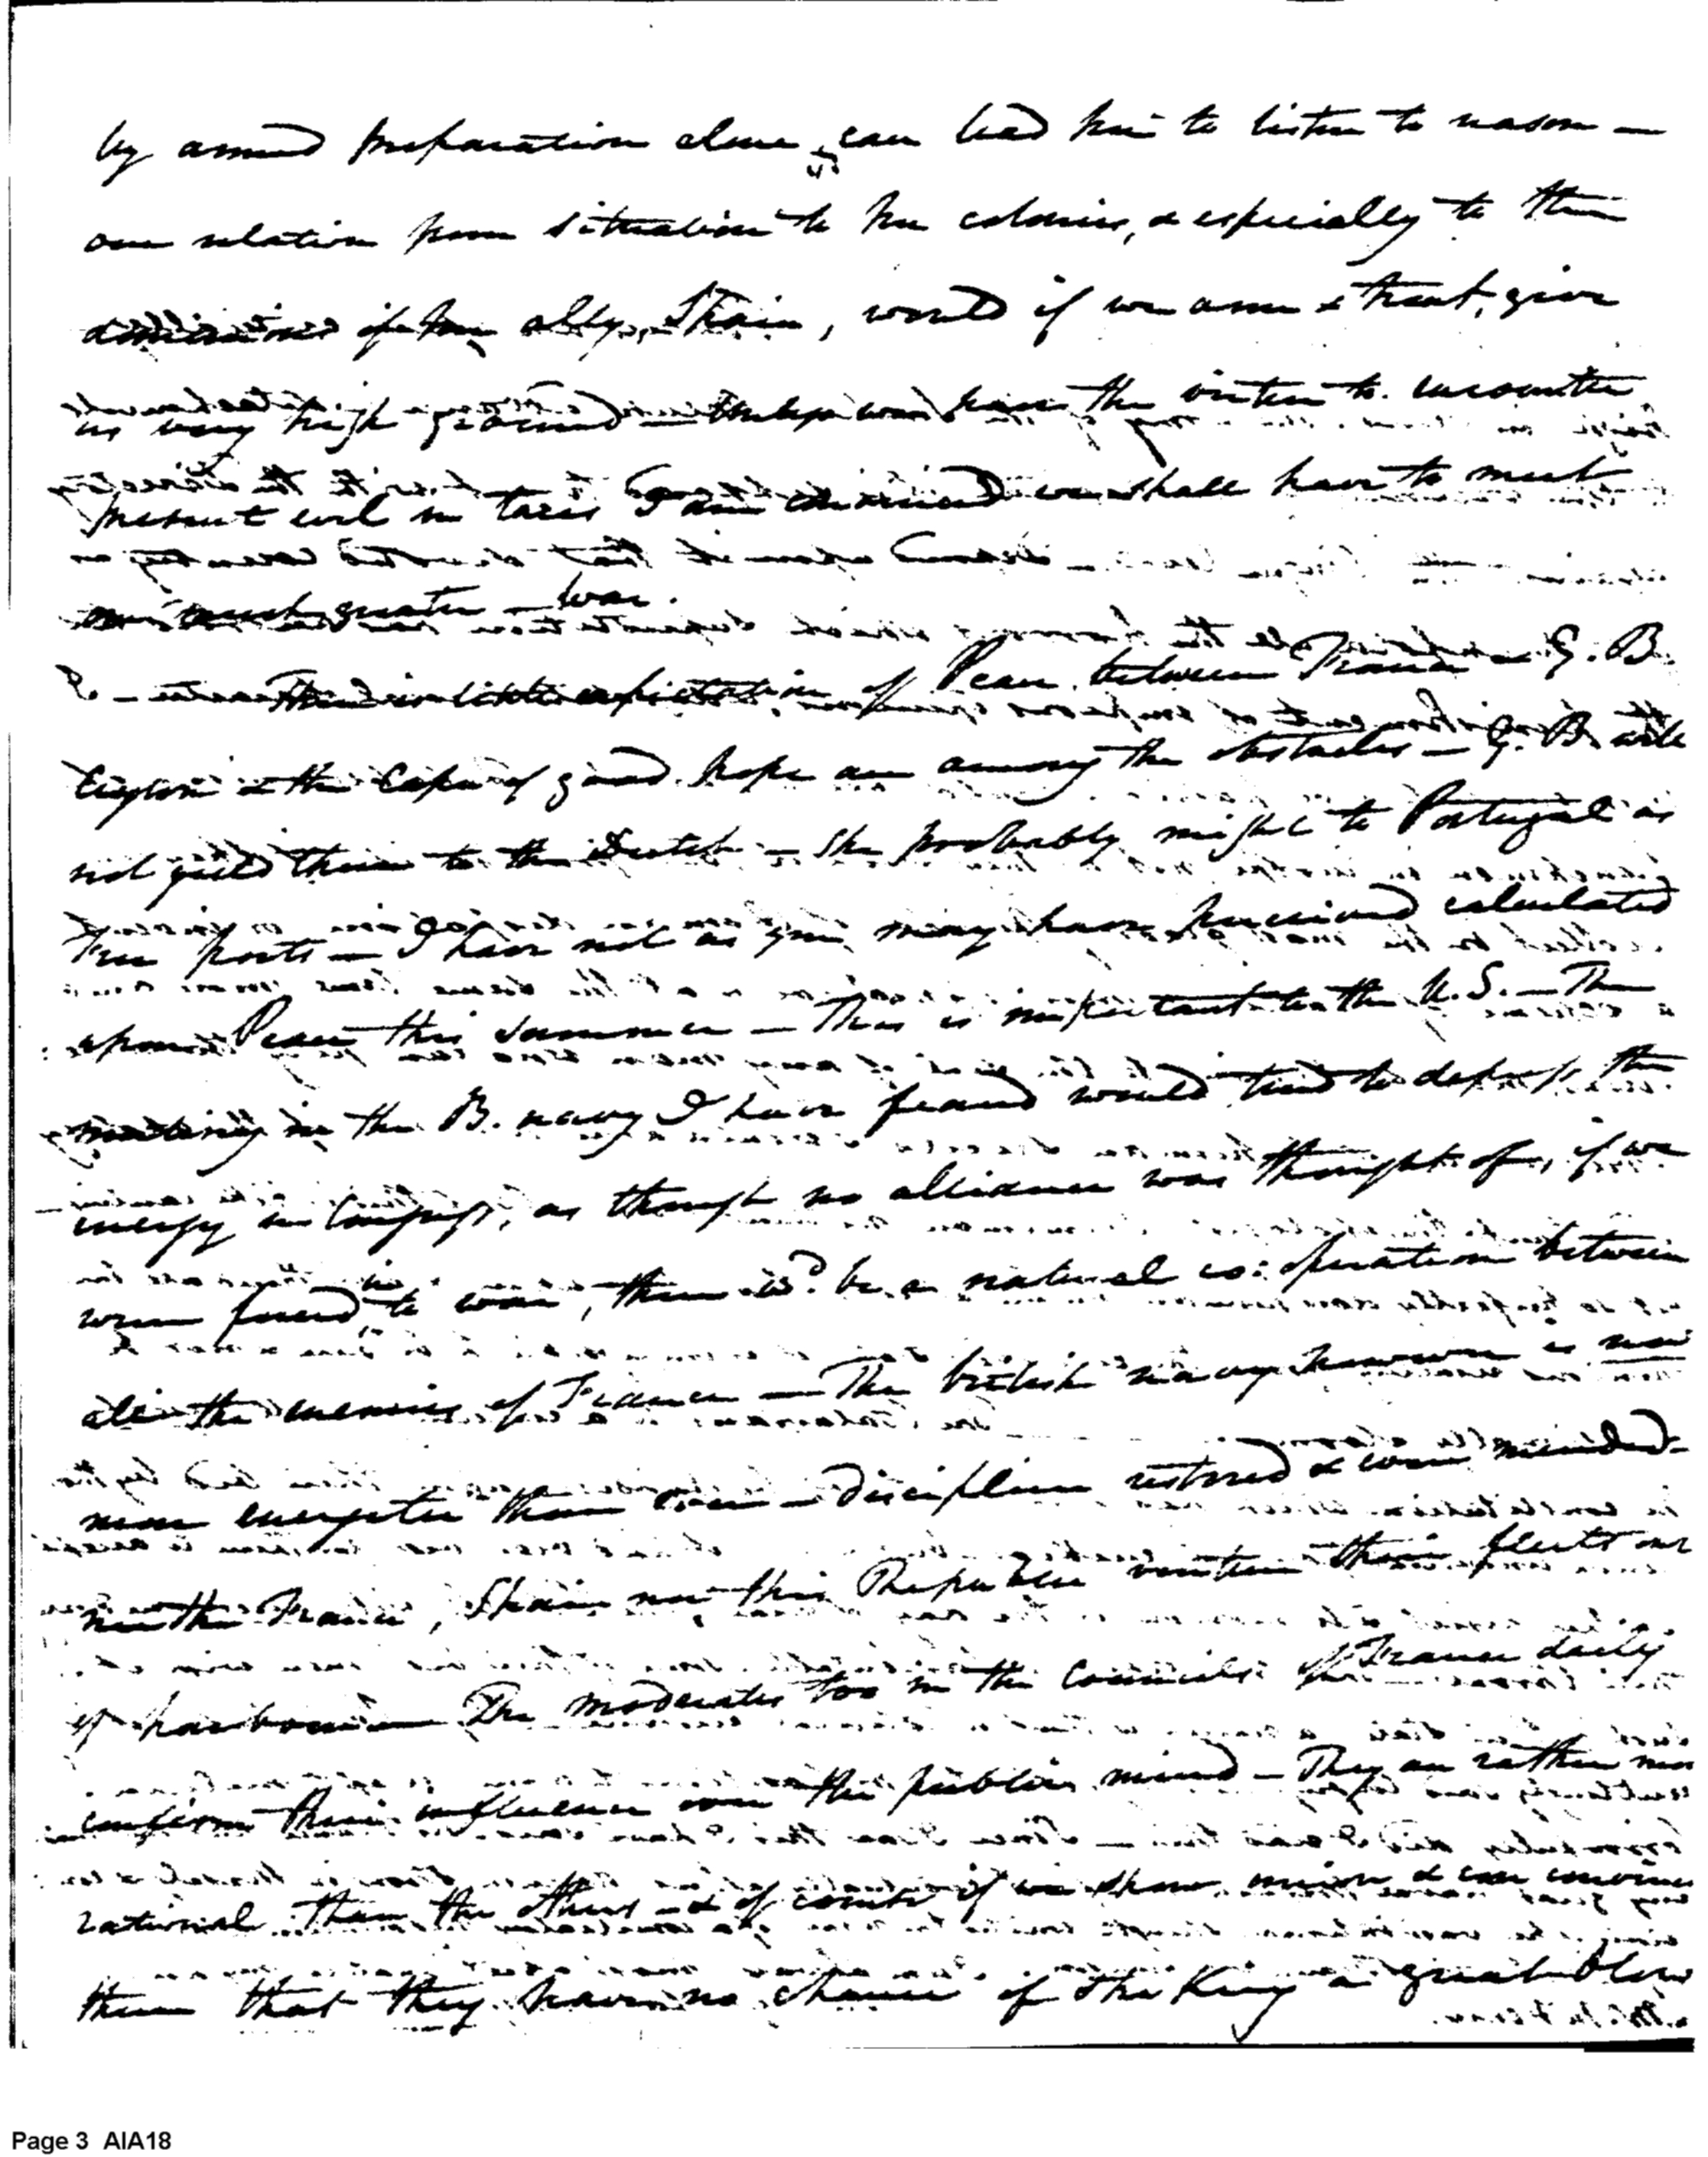 by armed preparation alone, can lead her to listen to reason —
us
our relation from situation to her colonies, & especially to the
dominions of her ally, Spain, would if we arm & treat, give
us very high ground — Unless we have the virtue to encounter
present evil in taxes I am convinced we shall have to meet
one much greater — War.
There is little expectation of Peace between France & G. B.
Ceylon & the Cape of good hope are among the obstacles — G. B. will
not yield them to the Dutch — She probably might to Portugal as
free ports — I have not as you may have perceived calculated
upon Peace this summer — This is important to the U.S. — The
mutiny in the B. navy I have feared would tend to depress the
energy in Congress, as though no alliance was thought of, if we
were forced in to war, there wd. be a natural co:operation between
all the enemies of France — The british navy however is now
more energetic than ever — discipline restored & well minded —
neither France, Spain nor this Republic venture their fleets out
of harbour — The moderates too in the Councils of France daily
confirm their influence over the public mind — They are rather more
rational than the others — & of course if we show union & can convince
them that they have no chance of striking a great blow
Page 3 AIA18